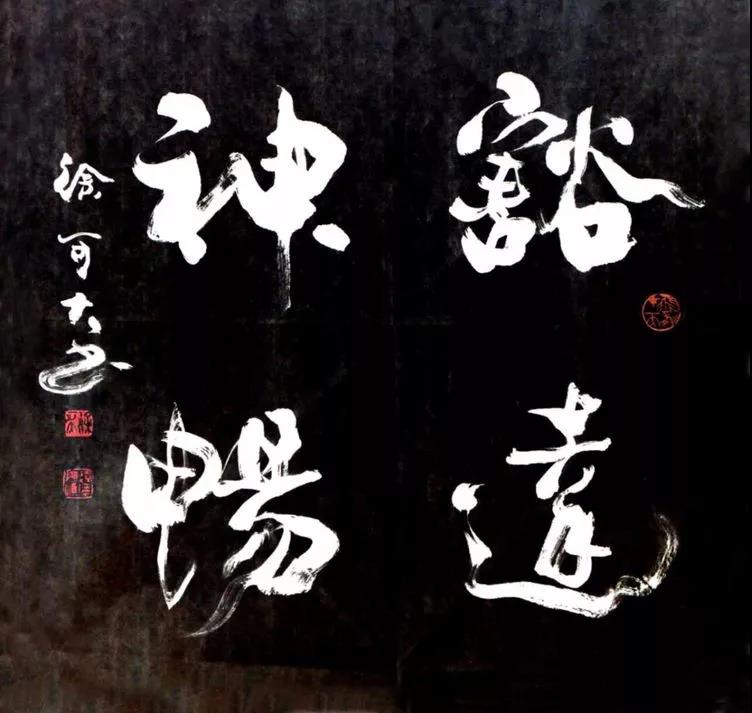 豁達
神暢
徐可大书